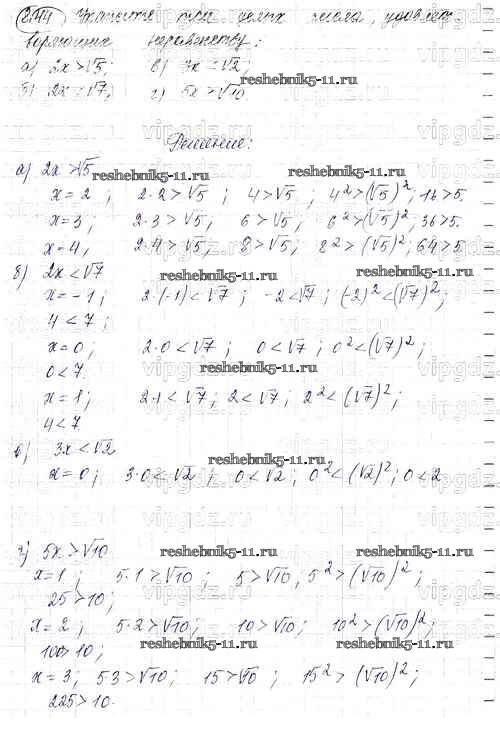 244 Укажите три целых числа, удовлет-
воряющие неравенству:
а) 2x>√5; в) 3x<√2;
б) 2x<√7; г) 5x>√10
reshebnik5-11.ru
Решение:
а) 2x>√5
reshebnik5-11.ru reshebnik5-11.ru
x=2, 2·2>√5; 4>√5, 4²>(√5)², 16>5.
x=3; 2·3>√5, 6>√5; 6²>(√5)², 36>5.
x=4, 2·4>√5, 8>√5; 8²>(√5)², 64>5
б) 2x<√7 reshebnik5-11.ru reshebnik5-11.ru
x=-1; 2·(-1)<√7; -2<√7; (-2)²<(√7)²;
4<7;
x=0; 2·0<√7; 0<√7; 0²<(√7)²;
0<7. reshebnik5-11.ru
x=1; 2·1<√7; 2<√7; 2²<(√7)²;
4<7
в) 3x<√2 reshebnik5-11.ru
x=0; 3·0<√2; 0<√2; 0²<(√2)²; 0<2
г) 5x>√10 reshebnik5-11.ru reshebnik5-11.ru
x=1; 5·1>√10; 5>√10; 5²>(√10)²;
25>10;
x=2; 5·2>√10; 10>√10; 10²>(√10)²;
100>10; reshebnik5-11.ru reshebnik5-11.ru
x=3; 5·3>√10; 15>√10; 15²>(√10)²;
225>10.